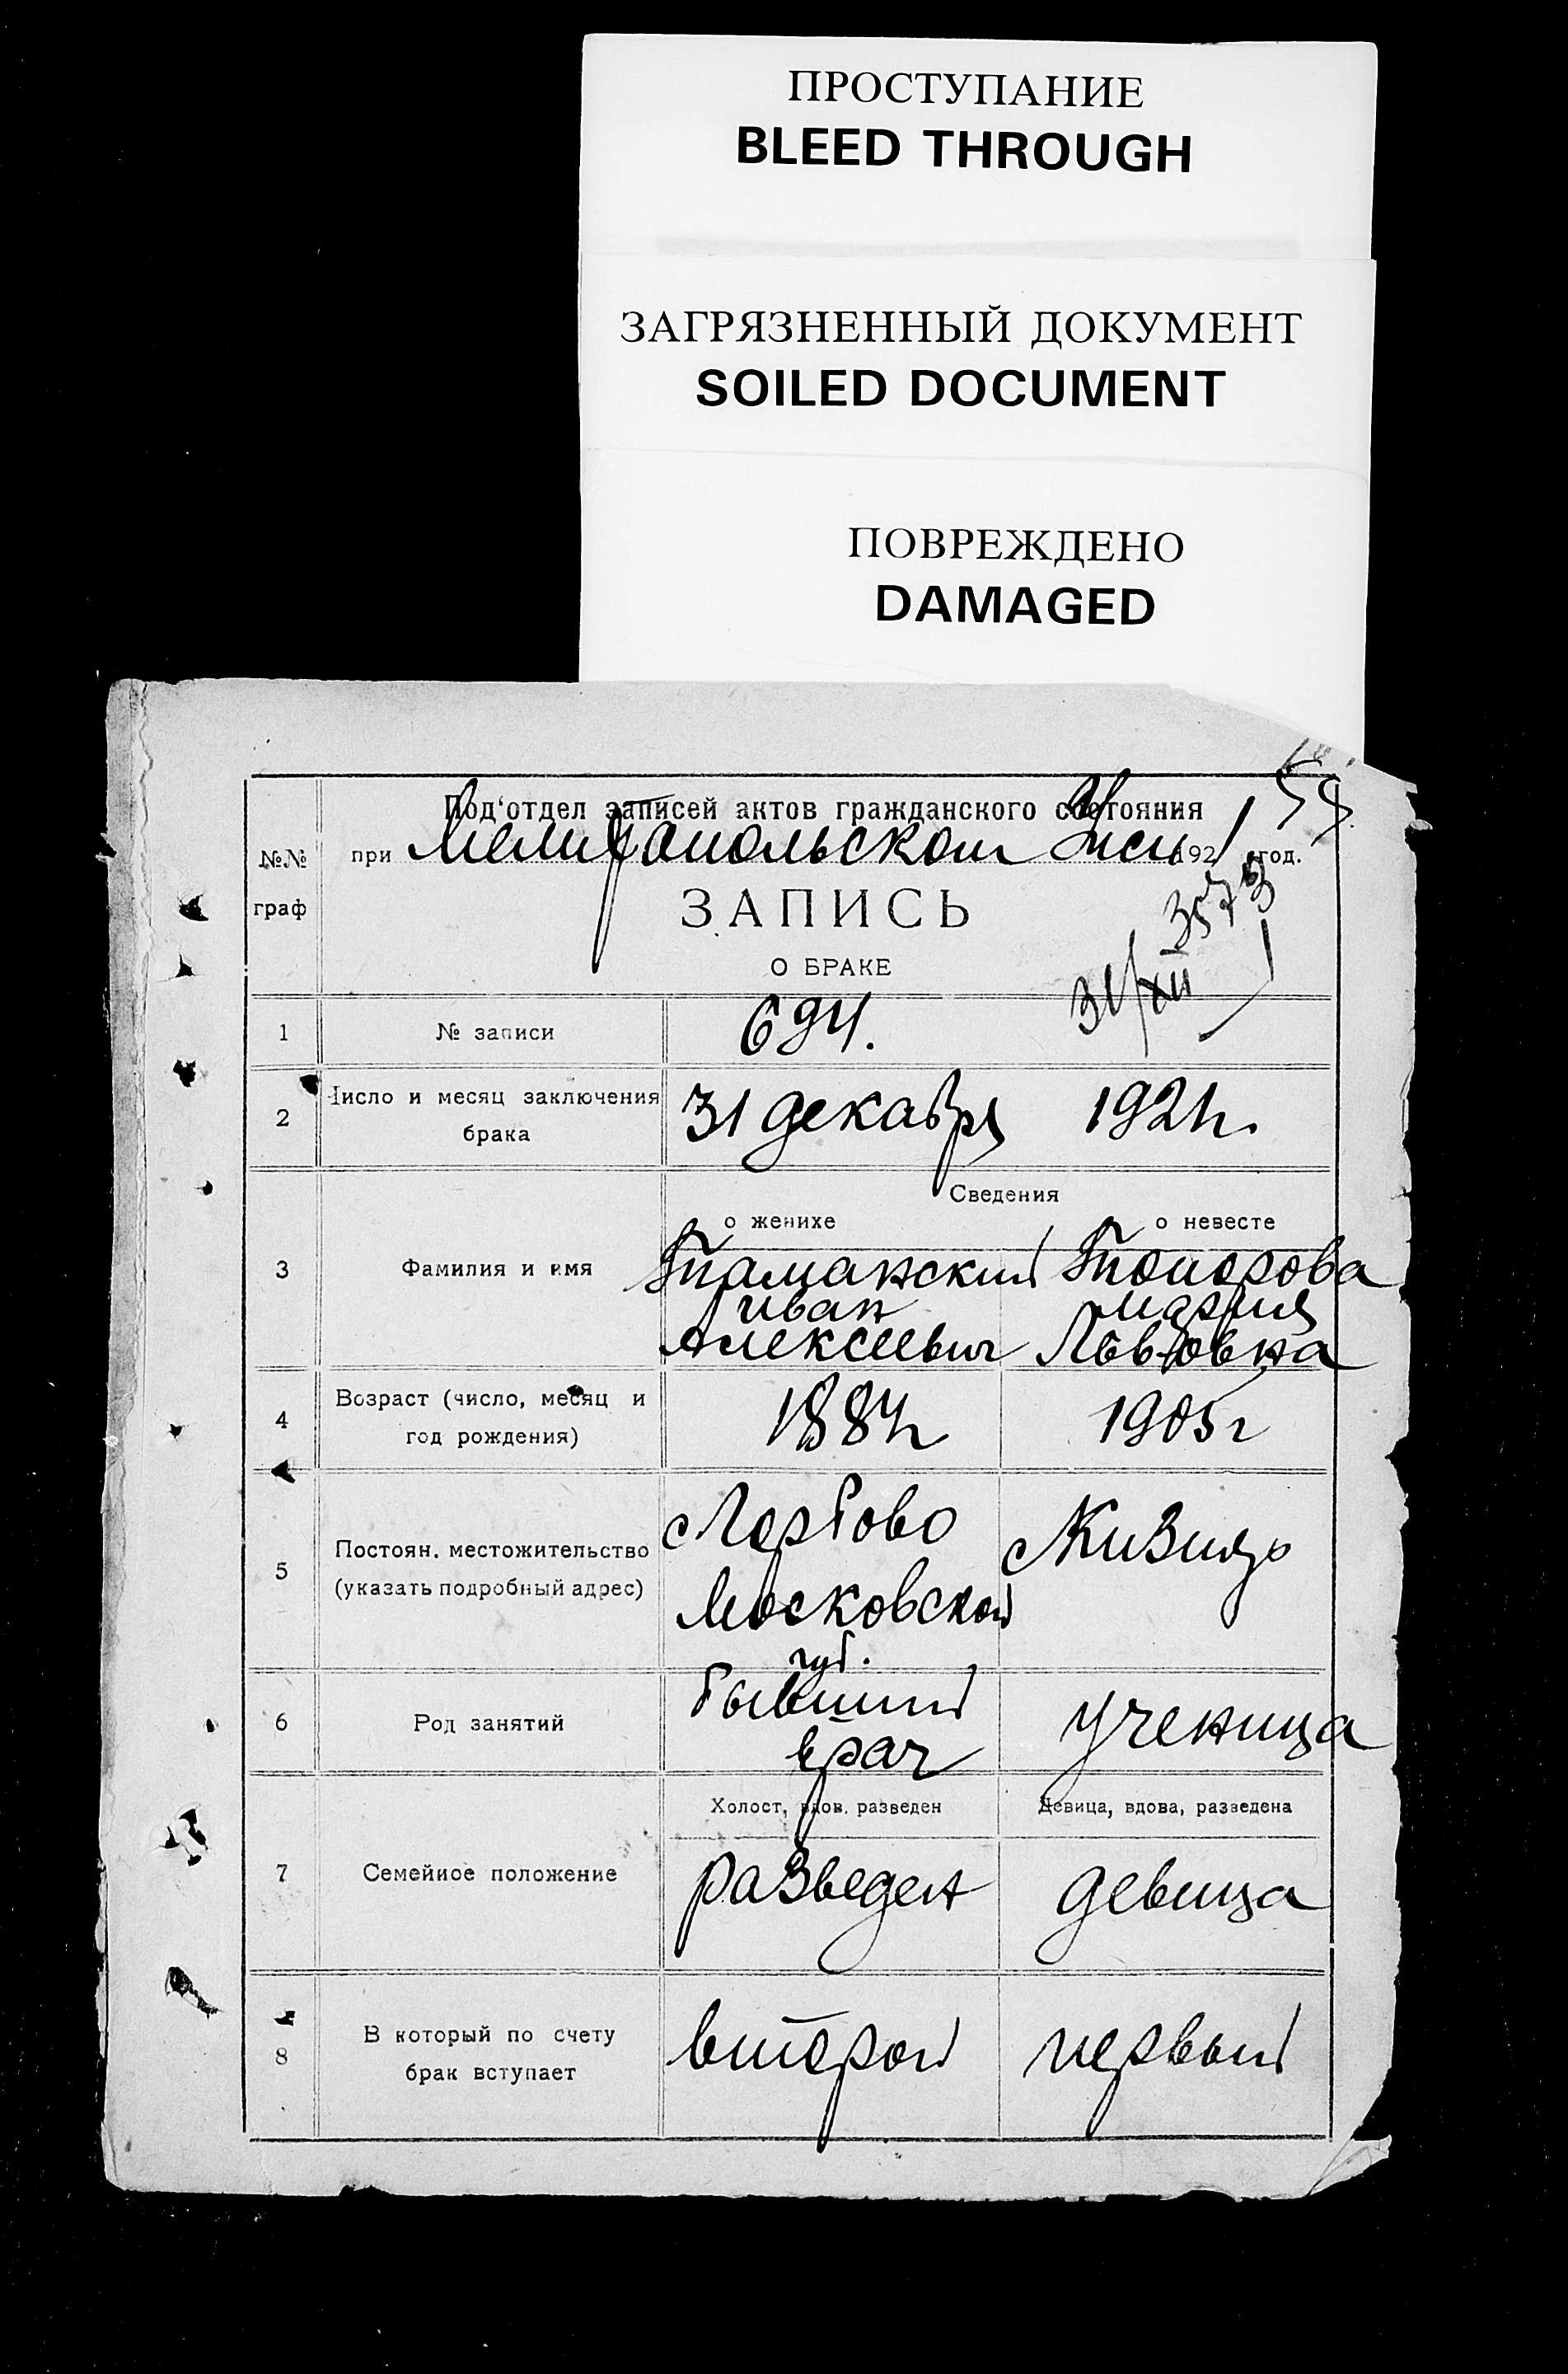 ПРОСТУПАНИЕ
BLEED THROUGH
ЗАГРЯЗНЕННЫЙ ДОКУМЕНТ
SOILED DOCUMENT
ПОВРЕЖДЕНО
DAMAGED
Под'отдел записей актов гражданского состояния
№№ граф
при Мелитопольском 1921 год.
3573
ЗАПИСЬ
31/XII
О БРАКЕ
1 № записи 694.
2 Число и месяц заключения брака 31 декабря 1921 г.
Сведения
о женихе о невесте
3 Фамилия и имя Таманский Топорова
Иван Мария
Алексеевич Львовна
4 Возраст (число, месяц и год рождения) 1887г 1905г
5 Постоян. местожительство (указать подробный адрес)
Московской
губ.
6 Род занятий бывший врач ученица
Холост, вдов. разведен Девица, вдова, разведена
7 Семейное положение разведен девица
8 В который по счету брак вступает второй первый